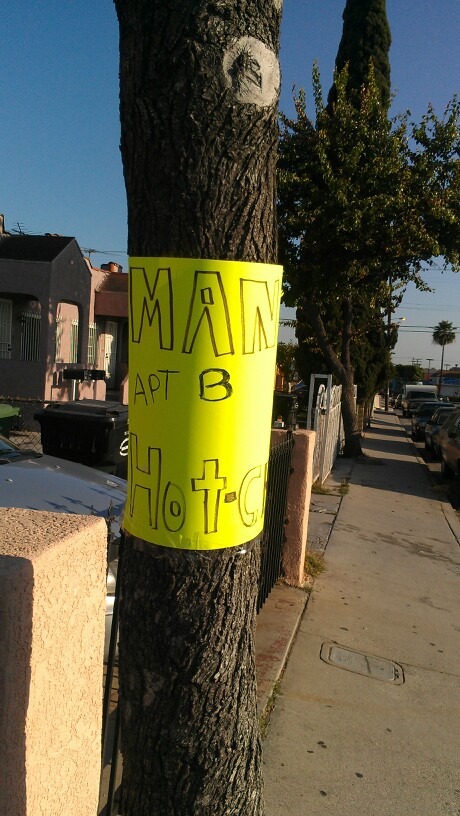 MAN
APT B
HOT-C